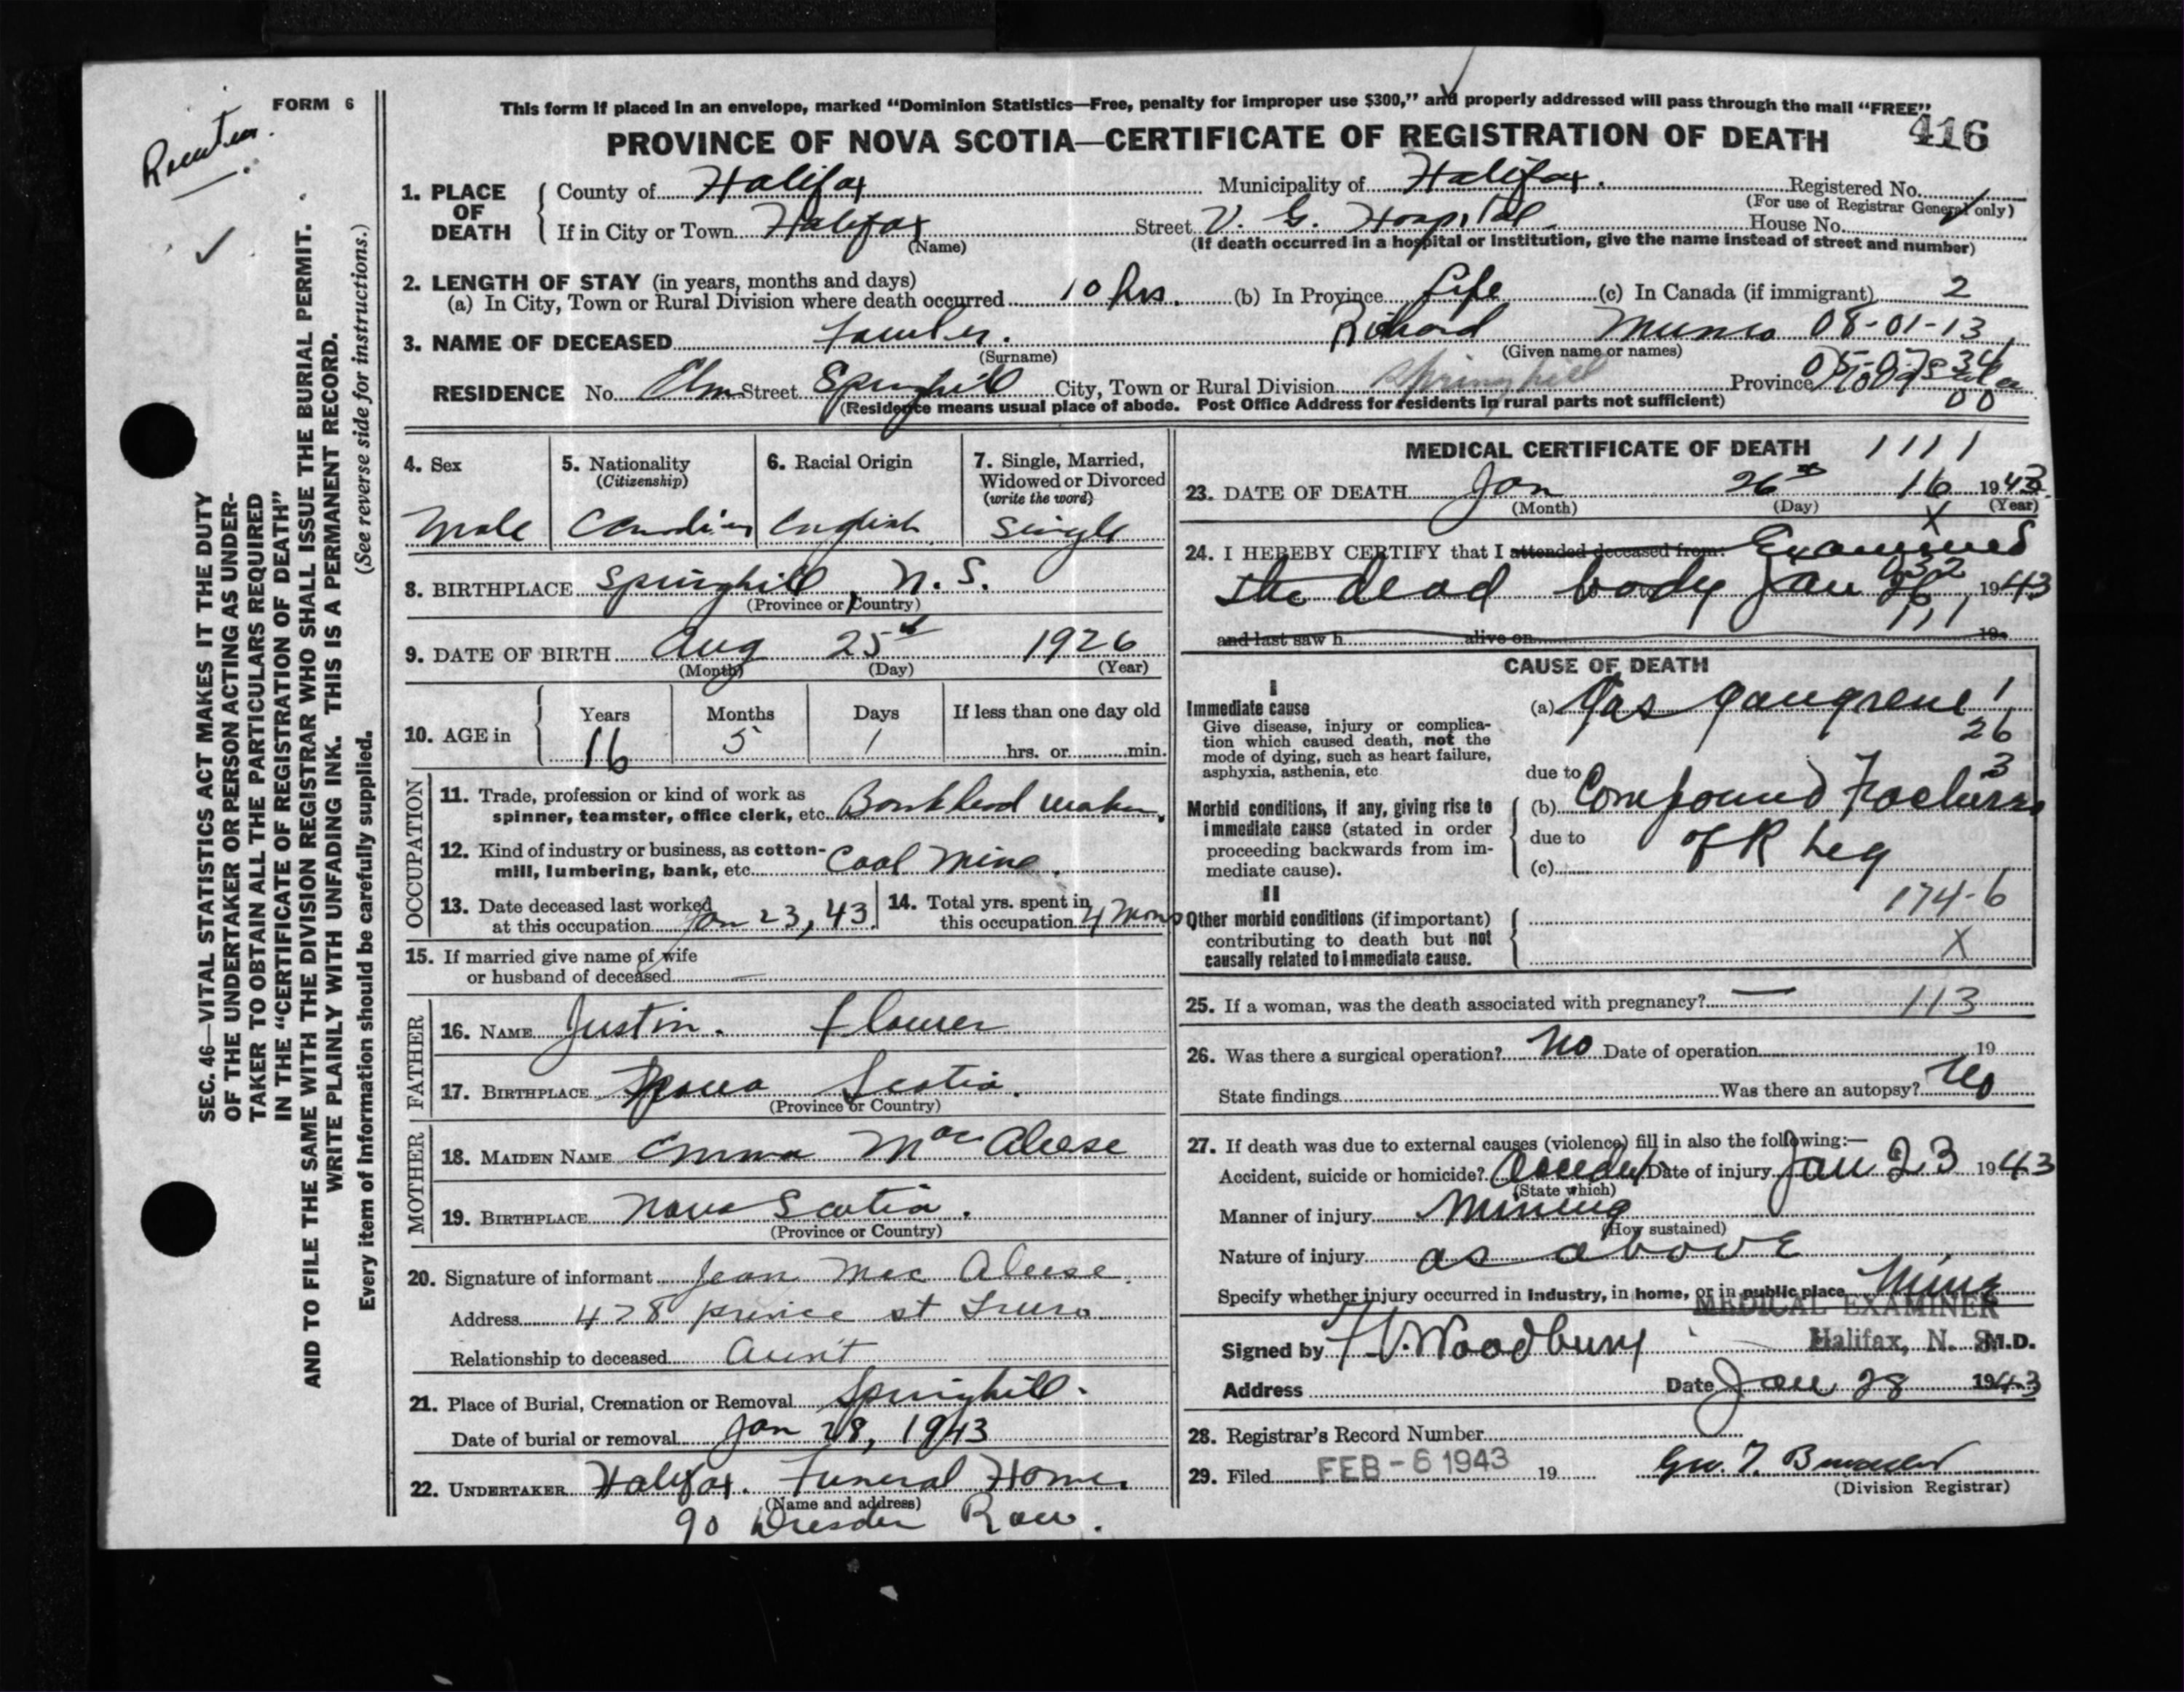 FORM 6
This form if placed in an envelope, marked "Dominion Statistics—Free, penalty for improper use $300," and properly addressed will pass through the mail "FREE"
PROVINCE OF NOVA SCOTIA—CERTIFICATE OF REGISTRATION OF DEATH 416
1. PLACE OF DEATH County of Halifax Municipality of Halifax. Registered No.
(For use of Registrar General only)
If in City or Town Halifax Street V. G. Hospital House No.
(Name) (If death occurred in a hospital or institution, give the name instead of street and number)
2. LENGTH OF STAY (in years, months and days)
(a) In City, Town or Rural Division where death occurred 10 hrs. (b) In Province life (c) In Canada (if immigrant) 2
3. NAME OF DECEASED Richard Munro 08-01-13
(Surname) (Given name or names)
RESIDENCE No. Elm Street Springhill City, Town or Rural Division Springhill Province
(Residence means usual place of abode. Post Office Address for residents in rural parts not sufficient) 00
SEC. 46—VITAL STATISTICS ACT MAKES IT THE DUTY
OF THE UNDERTAKER OR PERSON ACTING AS UNDER-
TAKER TO OBTAIN ALL THE PARTICULARS REQUIRED
IN THE "CERTIFICATE OF REGISTRATION OF DEATH"
AND TO FILE THE SAME WITH THE DIVISION REGISTRAR WHO SHALL ISSUE THE BURIAL PERMIT.
WRITE PLAINLY WITH UNFADING INK. THIS IS A PERMANENT RECORD.
Every item of information should be carefully supplied. (See reverse side for instructions.)
4. Sex 5. Nationality (Citizenship) 6. Racial Origin 7. Single, Married, Widowed or Divorced (write the word)
Male Canadian English Single
8. BIRTHPLACE Springhill, N. S.
(Province or Country)
9. DATE OF BIRTH Aug 25th 1926
(Month) (Day) (Year)
10. AGE in Years Months Days If less than one day old
16 5 1 hrs. or min.
OCCUPATION
11. Trade, profession or kind of work as
spinner, teamster, office clerk, etc.
12. Kind of industry or business, as cotton-
mill, lumbering, bank, etc. Coal Mine.
13. Date deceased last worked
at this occupation Jan 23, 43
14. Total yrs. spent in
this occupation 4 mons
15. If married give name of wife
or husband of deceased —
FATHER
16. NAME Justin. Flower
17. BIRTHPLACE Nova Scotia.
(Province or Country)
MOTHER
18. MAIDEN NAME Emma MacAleese
19. BIRTHPLACE Nova Scotia.
(Province or Country)
20. Signature of informant Jean MacAleese.
Address 478 Prince st Truro
Relationship to deceased Aunt
21. Place of Burial, Cremation or Removal Springhill.
Date of burial or removal Jan 28, 1943
22. UNDERTAKER Halifax. Funeral Home.
(Name and address)
90 Dresden Row.
MEDICAL CERTIFICATE OF DEATH 1111
23. DATE OF DEATH Jan 26th 16 1943
(Month) (Day) (Year)
X
24. I HEREBY CERTIFY that I attended deceased from: Examined
the dead body Jan 26 1943
and last saw h alive on 19
111
CAUSE OF DEATH
I
Immediate cause
Give disease, injury or complica-
tion which caused death, not the
mode of dying, such as heart failure,
asphyxia, asthenia, etc
(a) Gas gangrene 1
26
3
due to
Morbid conditions, if any, giving rise to
immediate cause (stated in order
proceeding backwards from im-
mediate cause).
(b) Compound Fractures
due to of R Leg
(c)
II
Other morbid conditions (if important)
contributing to death but not
causally related to immediate cause.
174-6
X
25. If a woman, was the death associated with pregnancy? — 113
26. Was there a surgical operation? No Date of operation 19
State findings Was there an autopsy? No
27. If death was due to external causes (violence) fill in also the following:—
Accident, suicide or homicide? Accident Date of injury Jan 23 1943
(State which)
Manner of injury Mining
(How sustained)
Nature of injury as above
Specify whether injury occurred in industry, in home, or in public place Mine
MEDICAL EXAMINER
Signed by Woodbury Halifax, N. S. M.D.
Address Date Jan 28 1943
28. Registrar's Record Number
29. Filed FEB-6 1943 19
(Division Registrar)